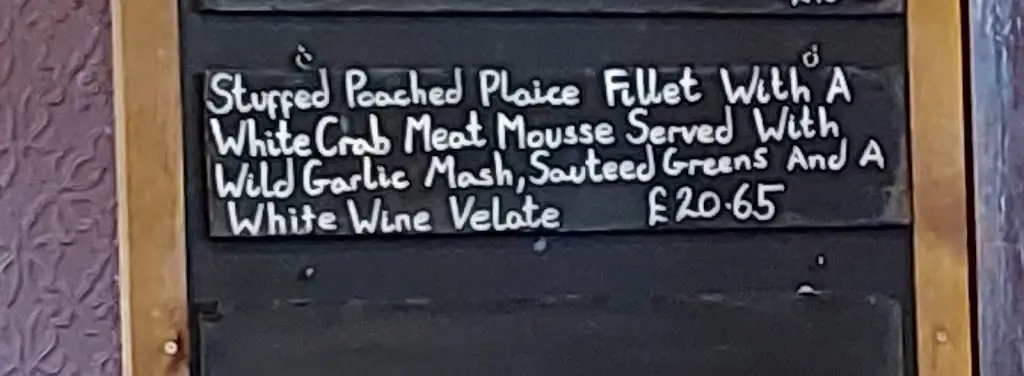 Stuffed Poached Plaice Fillet With A
White Crab Meat Mousse Served With
Wild Garlic Mash, Sauteed Greens And A
White Wine Velote £20.65